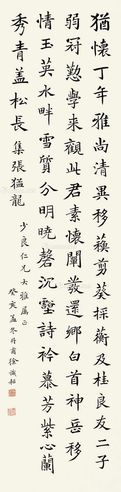 猶懷丁年雅尚清異移蘋剪葵採蘅及桂良友二子
弱冠懃學來觀此君素懷闡發還鄉白首神岳移
情玉英水畔雪質分明曉磬沉壑詩衿慕芳紫心蘭
秀青蓋松長 集張猛龍
少良仁兄大雅屬正
癸亥孟冬月